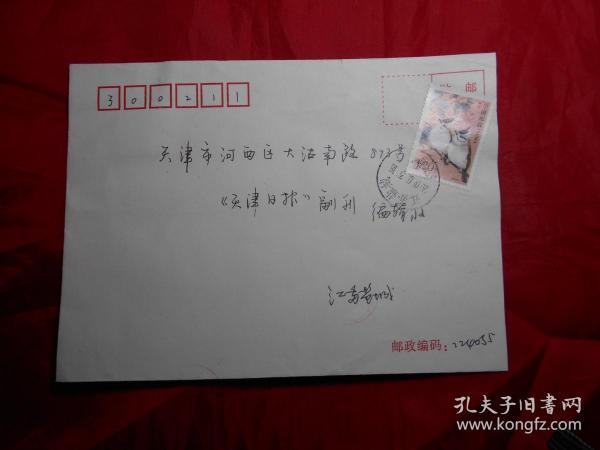 300211
邮
天津市河西区大沽南路873号
《天津日报》副刊 编辑收
江苏盐城
邮政编码：224055
孔夫子旧书网
www.kongfz.com